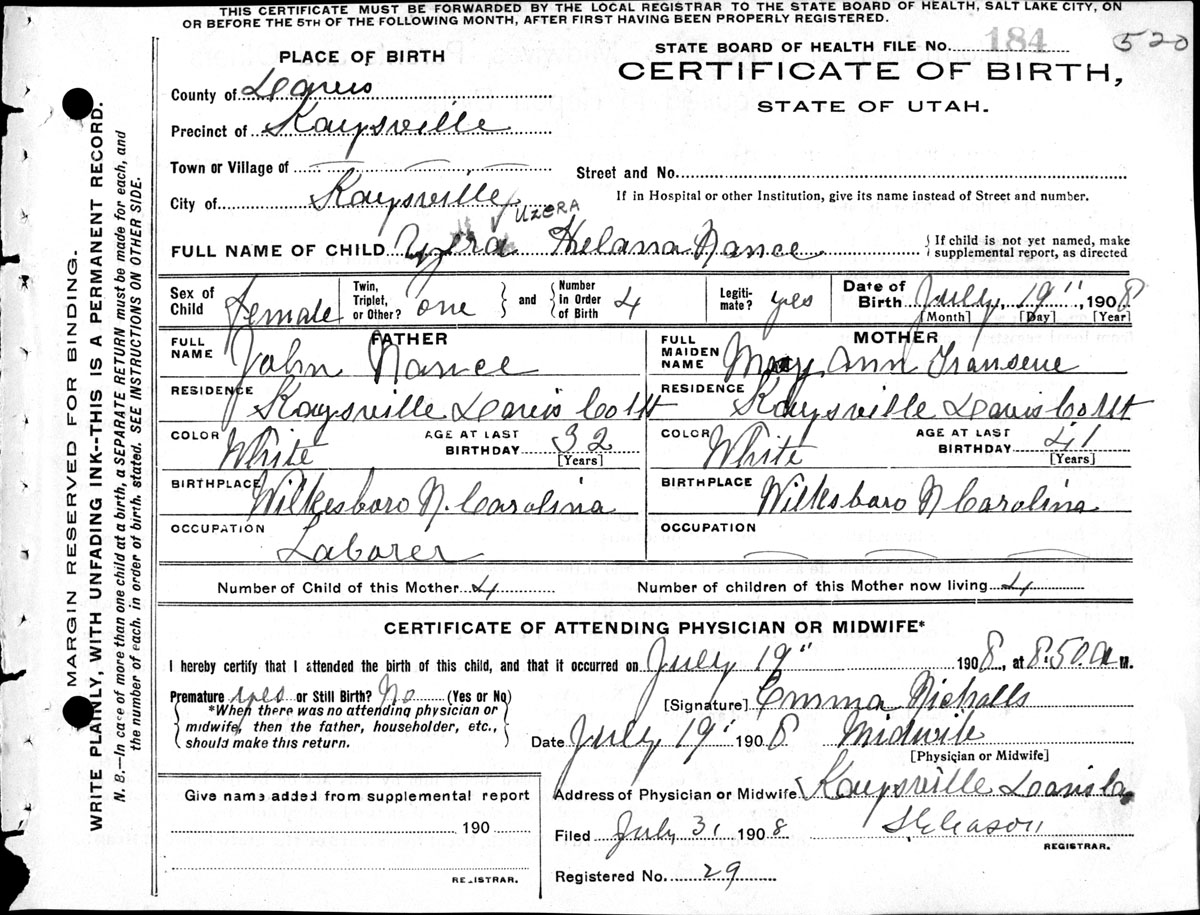 THIS CERTIFICATE MUST BE FORWARDED BY THE LOCAL REGISTRAR TO THE STATE BOARD OF HEALTH, SALT LAKE CITY, ON
OR BEFORE THE 5TH OF THE FOLLOWING MONTH, AFTER FIRST HAVING BEEN PROPERLY REGISTERED.
STATE BOARD OF HEALTH FILE No. 184 520
PLACE OF BIRTH
CERTIFICATE OF BIRTH,
STATE OF UTAH.
County of Davis
Precinct of Kaysville
Town or Village of
Street and No.
City of Kaysville
If in Hospital or other Institution, give its name instead of Street and number.
UZERA
FULL NAME OF CHILD Helana Nance
{ If child is not yet named, make
supplemental report, as directed
Sex of Child Female
Twin, Triplet, or Other? one } and { Number in Order of Birth 4
Legitimate? yes
Date of Birth July 19", 1908
[Month] [Day] [Year]
FATHER
FULL NAME John Nance
MOTHER
FULL MAIDEN NAME Mary Ann
RESIDENCE Kaysville Davis Co Ut
RESIDENCE Kaysville Davis Co Ut
COLOR White AGE AT LAST BIRTHDAY 32 [Years]
COLOR White AGE AT LAST BIRTHDAY 41 [Years]
BIRTHPLACE Wilkesboro N. Carolina
BIRTHPLACE Wilksboro N Carolina
OCCUPATION Laborer
OCCUPATION
Number of Child of this Mother 4 Number of children of this Mother now living 4
CERTIFICATE OF ATTENDING PHYSICIAN OR MIDWIFE*
I hereby certify that I attended the birth of this child, and that it occurred on July 19" 1908, at 8:50 a M.
Premature yes or Still Birth? No (Yes or No)
[Signature] Emma Nicholls
{ *When there was no attending physician or
midwife, then the father, householder, etc.,
should make this return.
Date July 19" 1908 Midwife
[Physician or Midwife]
Give name added from supplemental report
190
REGISTRAR.
Address of Physician or Midwife Kaysville Davis Co.
Filed July 31 1908
REGISTRAR.
Registered No. 29
MARGIN RESERVED FOR BINDING.
WRITE PLAINLY, WITH UNFADING INK--THIS IS A PERMANENT RECORD.
N. B.—In case of more than one child at a birth, a SEPARATE RETURN must be made for each, and
the number of each, in order of birth, stated. SEE INSTRUCTIONS ON OTHER SIDE.